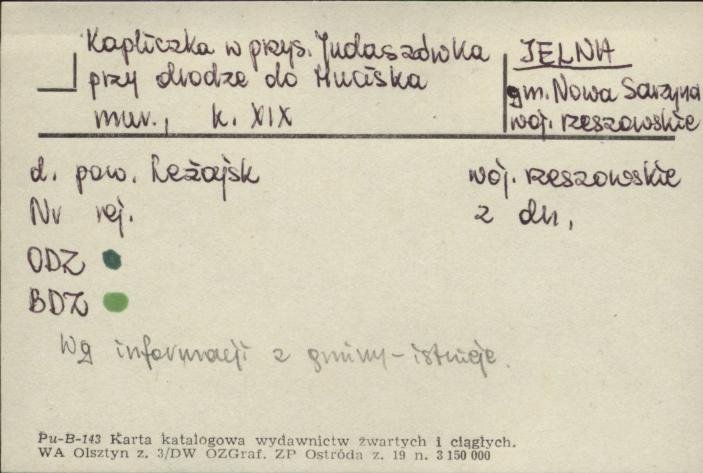 Kapliczka w przys. Judaszówka
przy drodze do Huciska
mur., k. XIX
JELNA
gm. Nowa Sarzyna
woj. rzeszowskie
d. pow. Leżajsk woj. rzeszowskie
Nr rej. z dn,
ODZ
BDZ
Wg informacji z gminy - istnieje.
Pu-B-143 Karta katalogowa wydawnictw zwartych i ciągłych.
WA Olsztyn z. 3/DW OZGraf. ZP Ostróda z. 19 n. 3 150 000